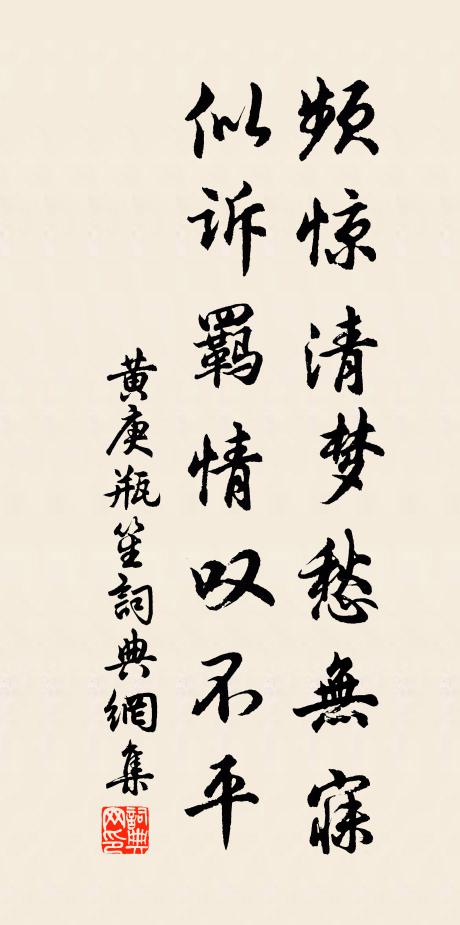 频惊清梦愁無寐
似诉羁情叹不平
黄庚瓶笙詞典網集
詞典网印